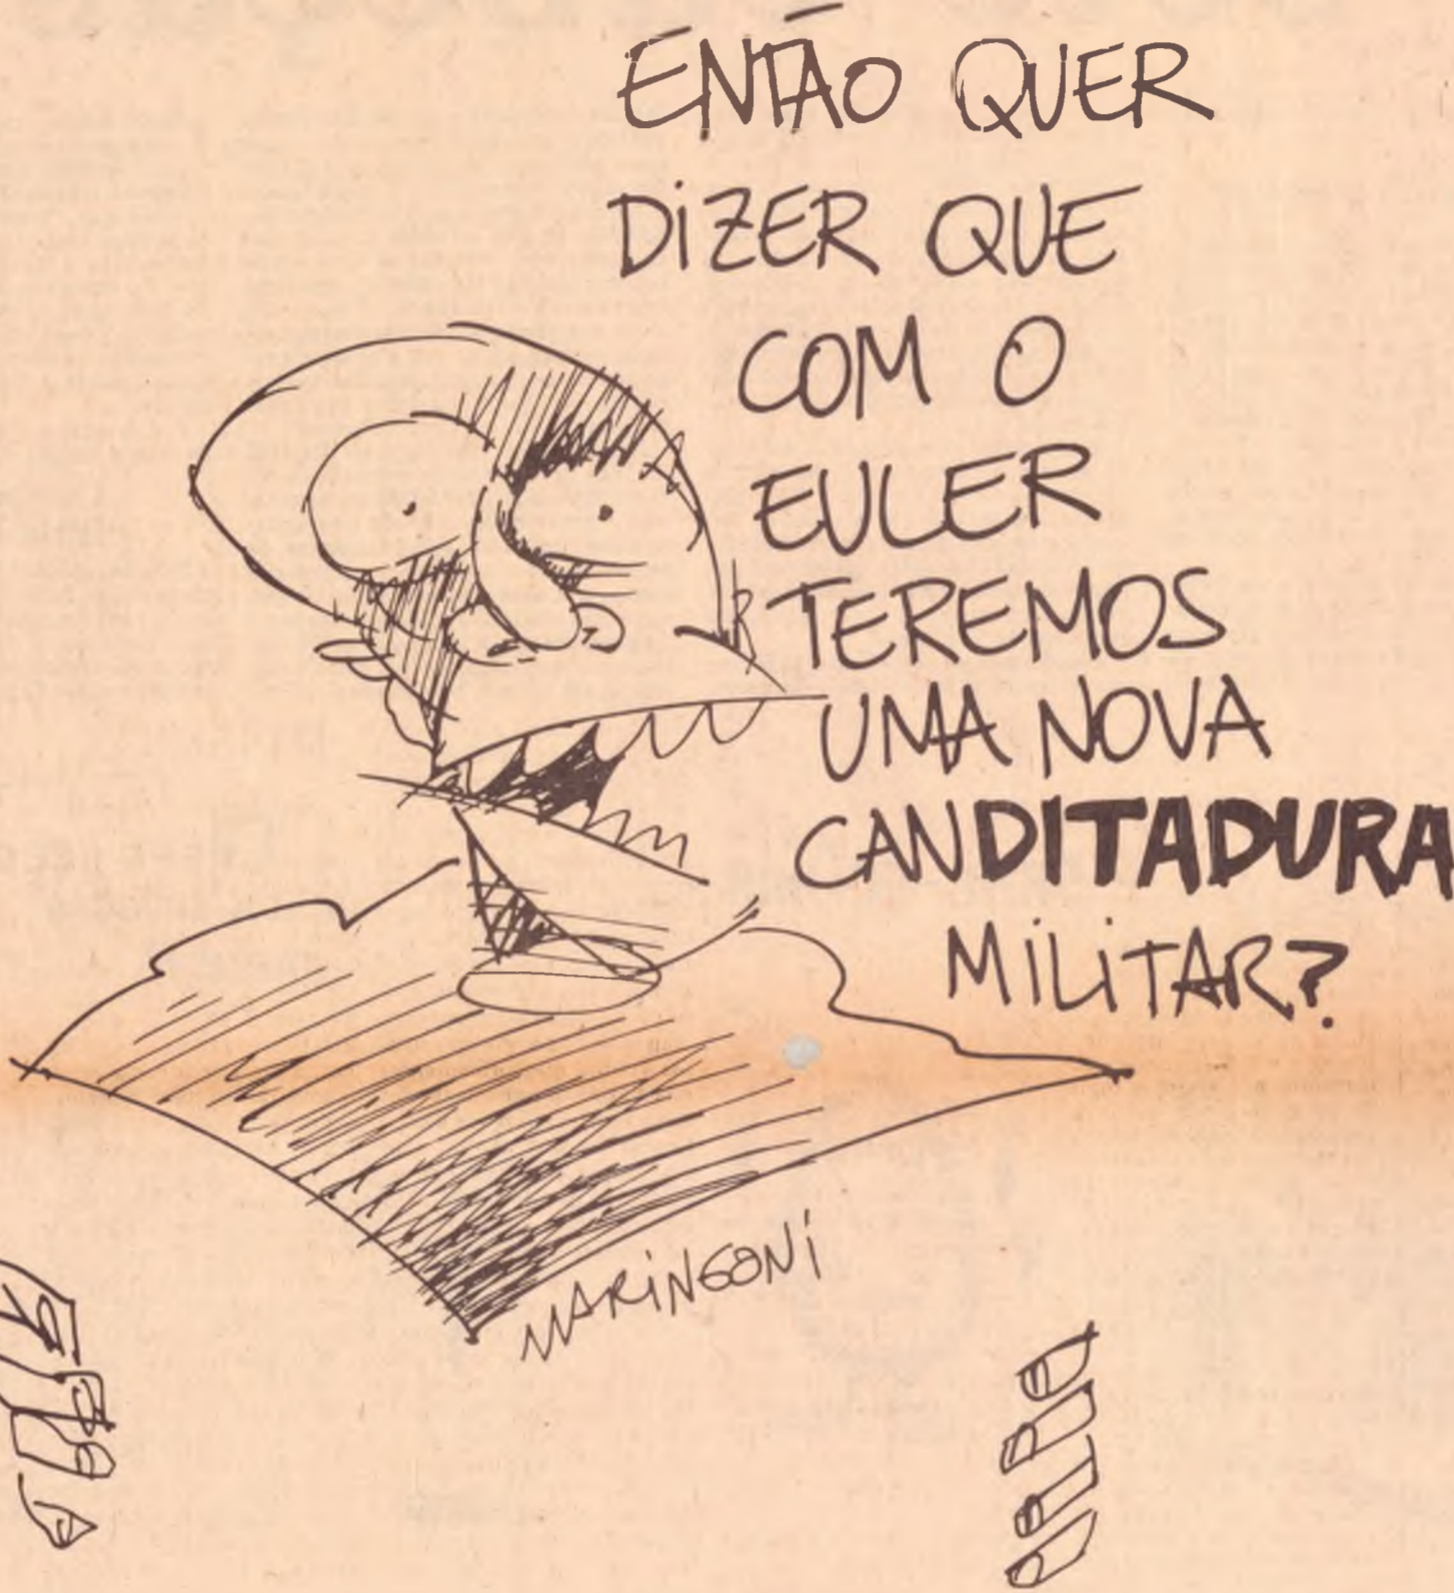 ENTÃO QUER
DIZER QUE
COM O
EULER
TEREMOS
UMA NOVA
CANDITADURA
MILITAR?
MARINGONI